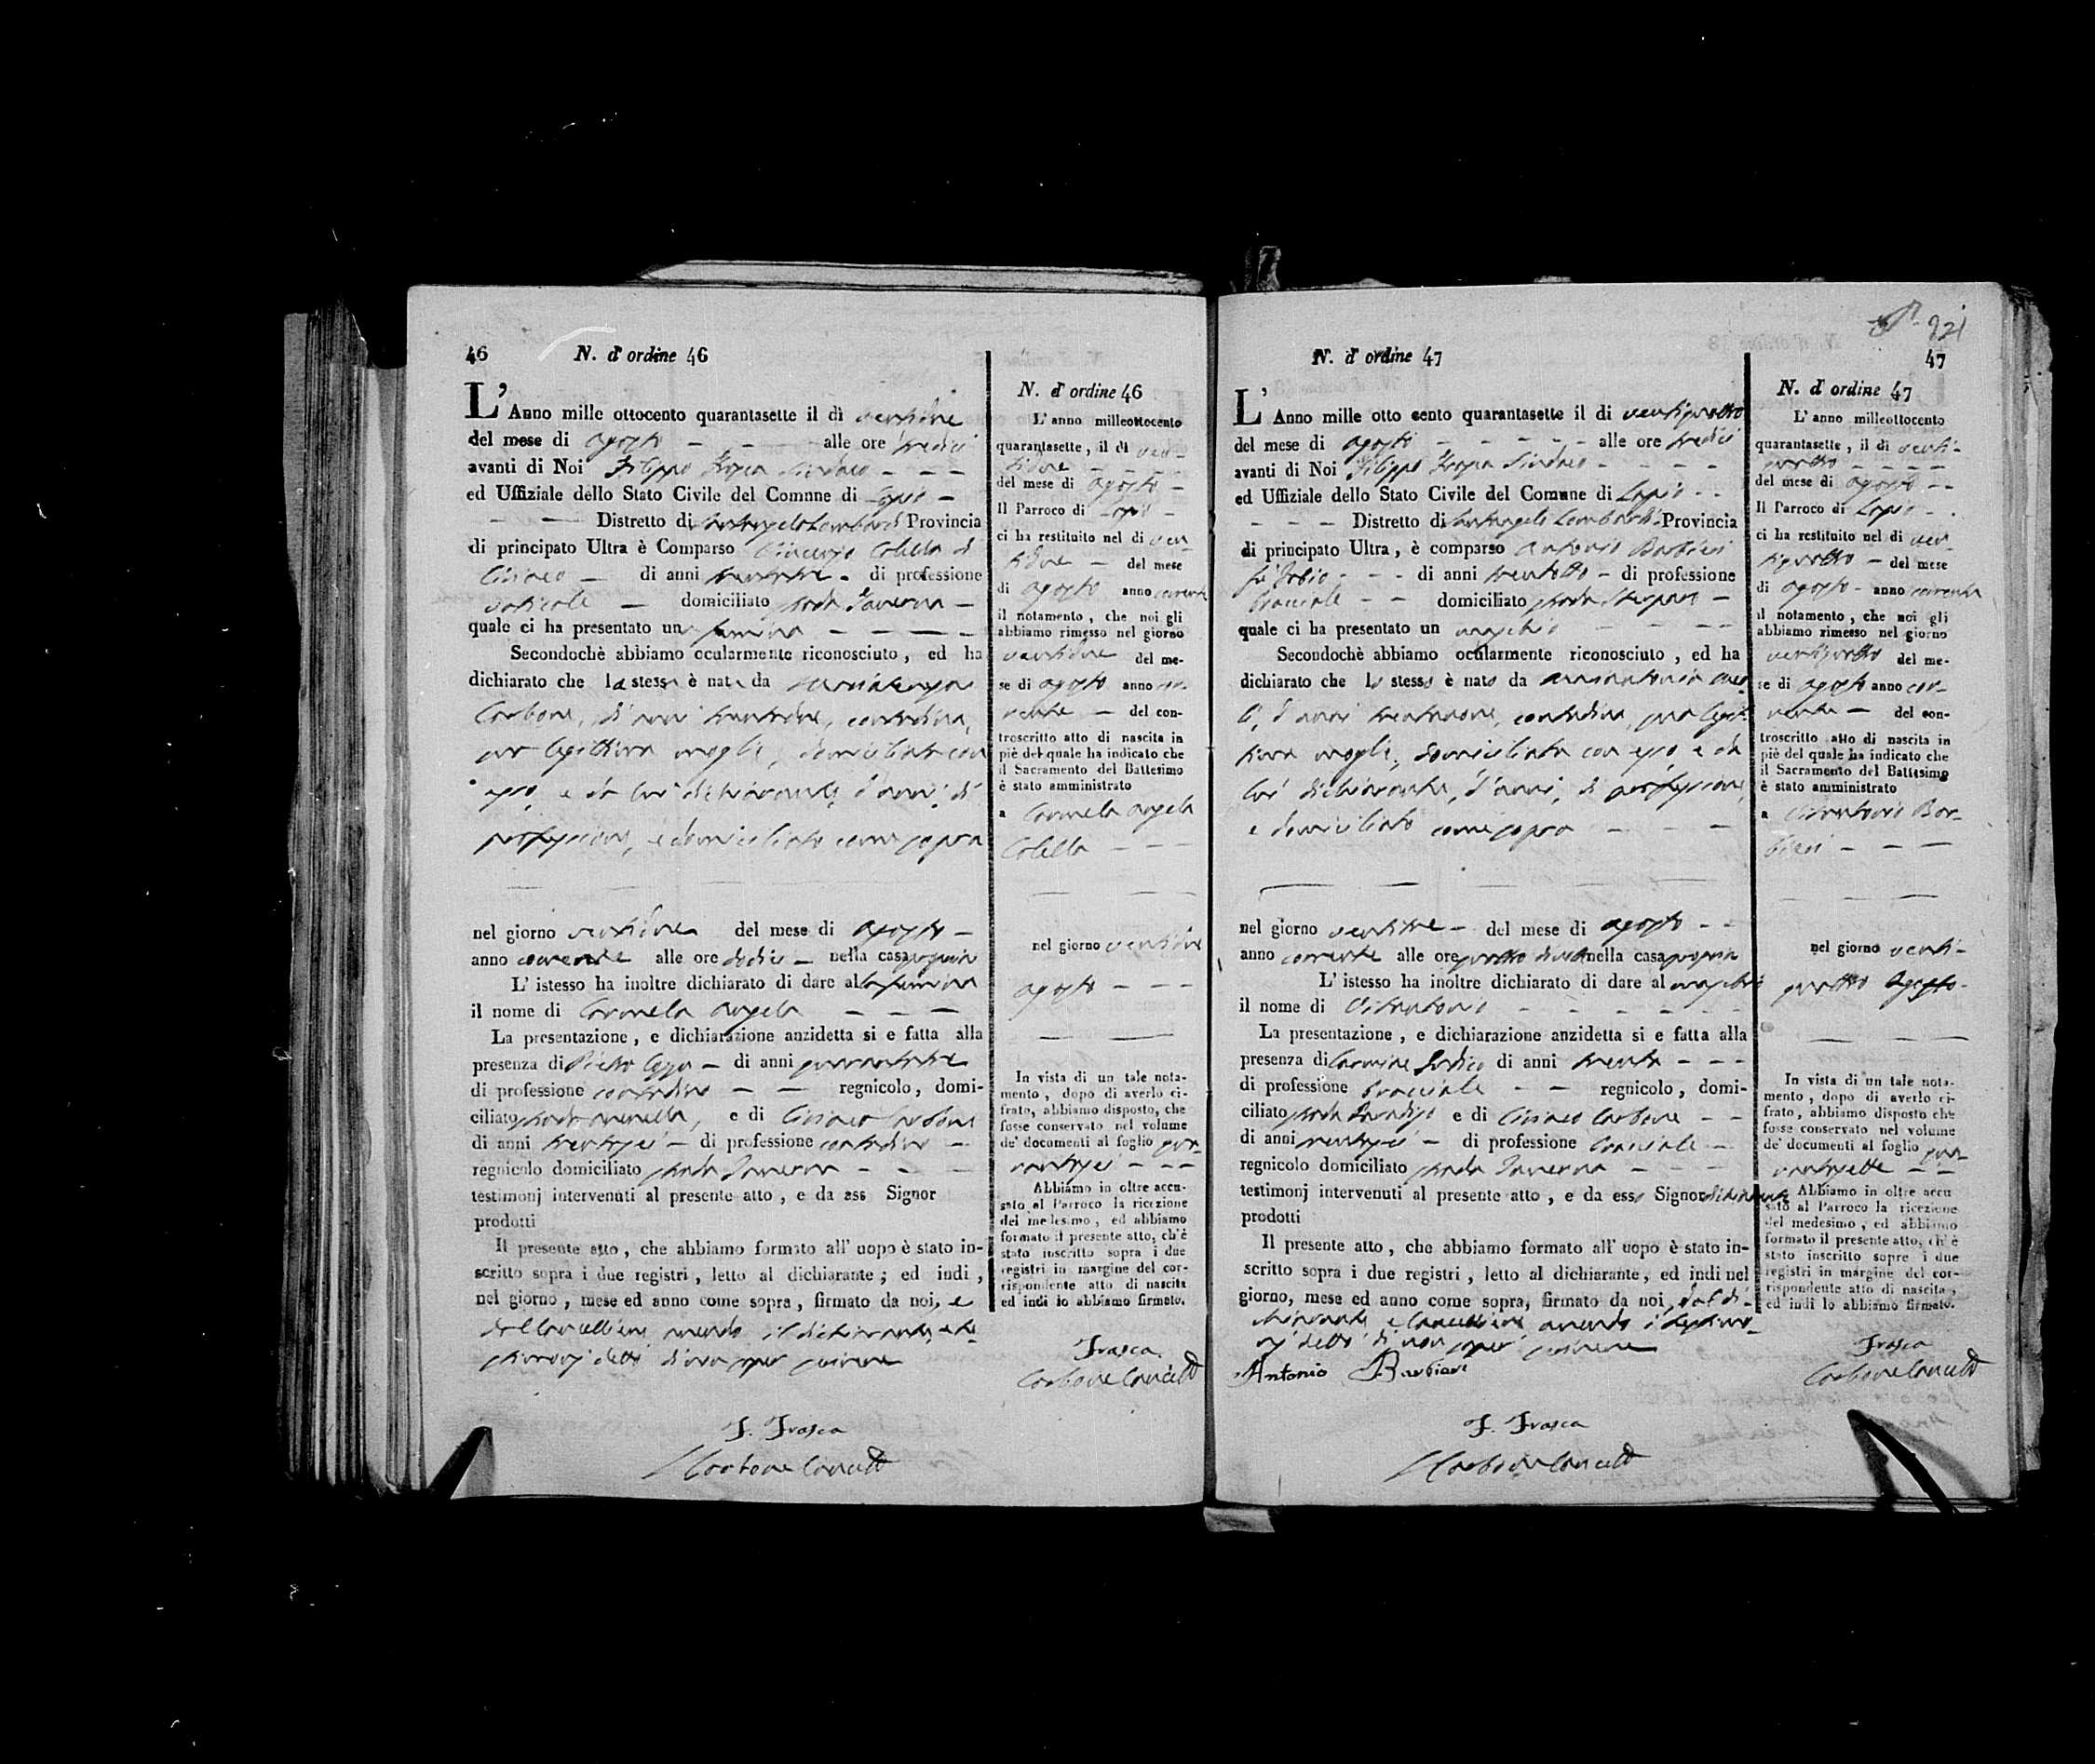 46 N. d' ordine 46
L' Anno mille ottocento quarantasette il dì ventidue
del mese di agosto — — — alle ore tredici
avanti di Noi Filippo Frasca Sindaco — — —
ed Uffiziale dello Stato Civile del Comune di Lapio —
— — Distretto di Santangelo Lombardi Provincia
di principato Ultra è Comparso Vincenzo Colella di
Ciriaco — di anni trentatre - di professione
— domiciliato strada Taverna —
quale ci ha presentato una femina — — — —
Secondochè abbiamo ocularmente riconosciuto, ed ha
dichiarato che la stessa è nata da
Carbone, di anni trentadue, contadina,
sua legittima moglie, domiciliata con
esso, e da lui dichiarante, d'anni, di
professione, e domiciliato come sopra
nel giorno ventidue del mese di agosto —
anno corrente alle ore dodici — nella casa propria
L' istesso ha inoltre dichiarato di dare alla femina
il nome di Carmela Angela — — —
La presentazione, e dichiarazione anzidetta si e fatta alla
presenza di Pietro — di anni quarantatre
di professione contadino — — regnicolo, domi-
ciliato strada e di Ciriaco Carbone
di anni trentasei — di professione contadino —
regnicolo domiciliato strada Taverna — - —
testimonj intervenuti al presente atto, e da ess Signor
prodotti
Il presente atto, che abbiamo formato all' uopo è stato in-
scritto sopra i due registri, letto al dichiarante; ed indi,
nel giorno, mese ed anno come sopra, firmato da noi, e
dal Cancelliere avendo il dichiarante, e te-
stimonj detto di non saper scrivere
F. Frasca
Carbone Cancell
N. d' ordine 46
L' anno milleottocento
quarantasette, il dì ven-
tidue — — — —
del mese di agosto —
Il Parroco di Lapio —
ci ha restituito nel di ven-
tidue — del mese
di agosto anno corrente
il notamento, che noi gli
abbiamo rimesso nel giorno
ventidue del me-
se di agosto anno cor-
rente — del con-
troscritto atto di nascita in
piè del quale ha indicato che
il Sacramento del Battesimo
è stato amministrato
a Carmela Angela
Colella — — —
nel giorno ventidue
agosto — — —
In vista di un tale nota-
mento, dopo di averlo ci-
frato, abbiamo disposto, che
fosse conservato nel volume
de' documenti al foglio qua-
rantasei — — —
Abbiamo in oltre accu-
sato al Parroco la ricezione
del medesimo, ed abbiamo
formato il presente atto, ch'è
stato inscritto sopra i due
registri in margine del cor-
rispondente atto di nascita
ed indi lo abbiamo firmato.
Frasca
Carbone Cancell
921
N. d' ordine 47 47
L' Anno mille otto cento quarantasette il di ventiquattro
del mese di agosto - - - - - alle ore tredici
avanti di Noi Filippo Frasca Sindaco - - - -
ed Uffiziale dello Stato Civile del Comune di Lapio - -
- - - Distretto di Santangelo Lombardi Provincia
di principato Ultra, è comparso Antonio Barbieri
fu - - - di anni trentotto - di professione
bracciale - - domiciliato strada —
quale ci ha presentato un maschio — — — —
Secondochè abbiamo ocularmente riconosciuto, ed ha
dichiarato che lo stesso è nato da Annantonia
d'anni trentanove, contadina, sua legit-
tima moglie, domiciliata con esso, e da
lui dichiarante, d'anni, di professione,
e domiciliato come sopra — — —
nel giorno ventitre - del mese di agosto - -
anno corrente alle ore quattro nella casa propria
L' istesso ha inoltre dichiarato di dare al maschio
il nome di Vitantonio - - - - - -
La presentazione, e dichiarazione anzidetta si e fatta alla
presenza di Carmine di anni trenta - - -
di professione bracciale - — regnicolo, domi-
ciliato strada e di Ciriaco Carbone - -
di anni trentasei — di professione bracciale -
regnicolo domiciliato strada Taverna - - -
testimonj intervenuti al presente atto, e da esso Signor dichiarante
prodotti
Il presente atto, che abbiamo formato all' uopo è stato in-
scritto sopra i due registri, letto al dichiarante, ed indi nel
giorno, mese ed anno come sopra, firmato da noi, dal di-
chiarante e Cancelliere avendo i testimo-
nj detto di non saper scrivere
Antonio Barbieri
F. Frasca
Carbone Cancell
N. d' ordine 47
L' anno milleottocento
quarantasette, il dì venti-
quattro — — — —
del mese di agosto - -
Il Parroco di Lapio - .
ci ha restituito nel di ven-
tiquattro — del mese
di agosto - anno corrente
il notamento, che noi gli
abbiamo rimesso nel giorno
ventiquattro del me-
se di agosto anno cor-
rente — del con-
troscritto atto di nascita in
piè del quale ha indicato che
il Sacramento del Battesimo
è stato amministrato
a Vitantonio Bar-
bieri - — —
nel giorno venti-
quattro Agosto -
In vista di un tale nota-
mento, dopo di averlo ci-
frato, abbiamo disposto che
fosse conservato nel volume
de' documenti al foglio qua-
rantasette — —
Abbiamo in oltre accu
sato al Parroco la ricezione
del medesimo, ed abbiamo
formato il presente atto, ch'è
stato inscritto sopre i due
registri in margine del cor-
rispondente atto di nascita,
ed indi lo abbiamo firmato.
Frasca
Carbone Cancell